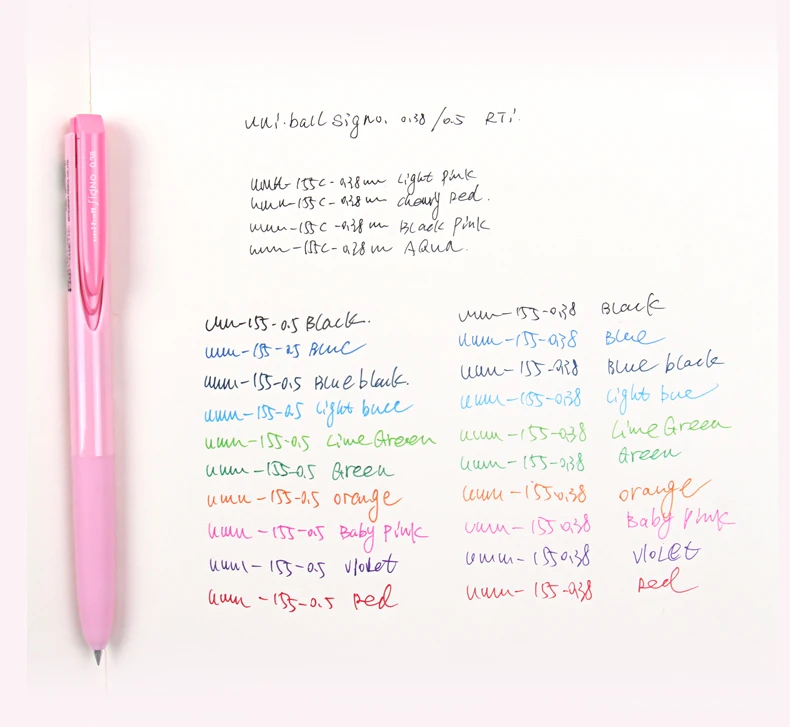 uni.ball signo. 0.38/0.5 RTi.
umn-155C-0.38mm Light Pink
umn-155C-0.38mm Cherry Red.
umn-155C-0.38mm Black Pink
umn-155C-0.38m AQUA.
umn-155-0.5 Black.
umn-155-0.5 Blue
umn-155-0.5 Blue black.
umn-155-0.5 Light buee
umn-155-0.5 Lime Green
umn-155-0.5 Green
umn-155-0.5 orange
umn-155-0.5 Baby Pink
umn-155-0.5 Violet
umn-155-0.5 Red
umn-155-0.38 Black
umn-155-0.38 Blue
umn-155-0.38 Blue black
umn-155-0.38 Light bue
umn-155-0.38 Lime Green
umn-155-0.38 Green
umn-155-0.38 orange
umn-155-0.38 Baby Pink
umn-155-0.38 Violet
umn-155-0.38 Red
uni-ball SIGNO 0.38